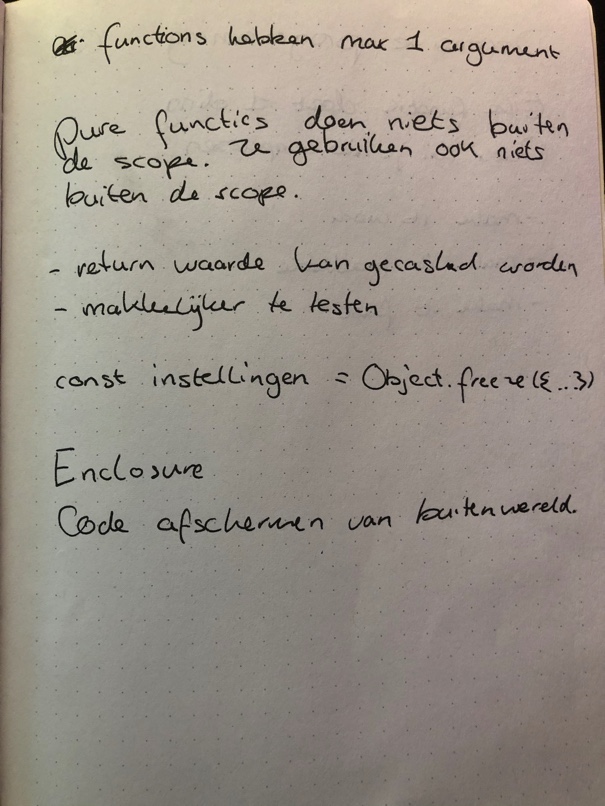 functions hebben max 1 argument
Pure functies doen niets buiten
de scope. Ze gebruiken ook niets
buiten de scope.
- return waarde kan gecashed worden
- makkelijker te testen
const instellingen = Object.freeze({...})
Enclosure
Code afschermen van buitenwereld.